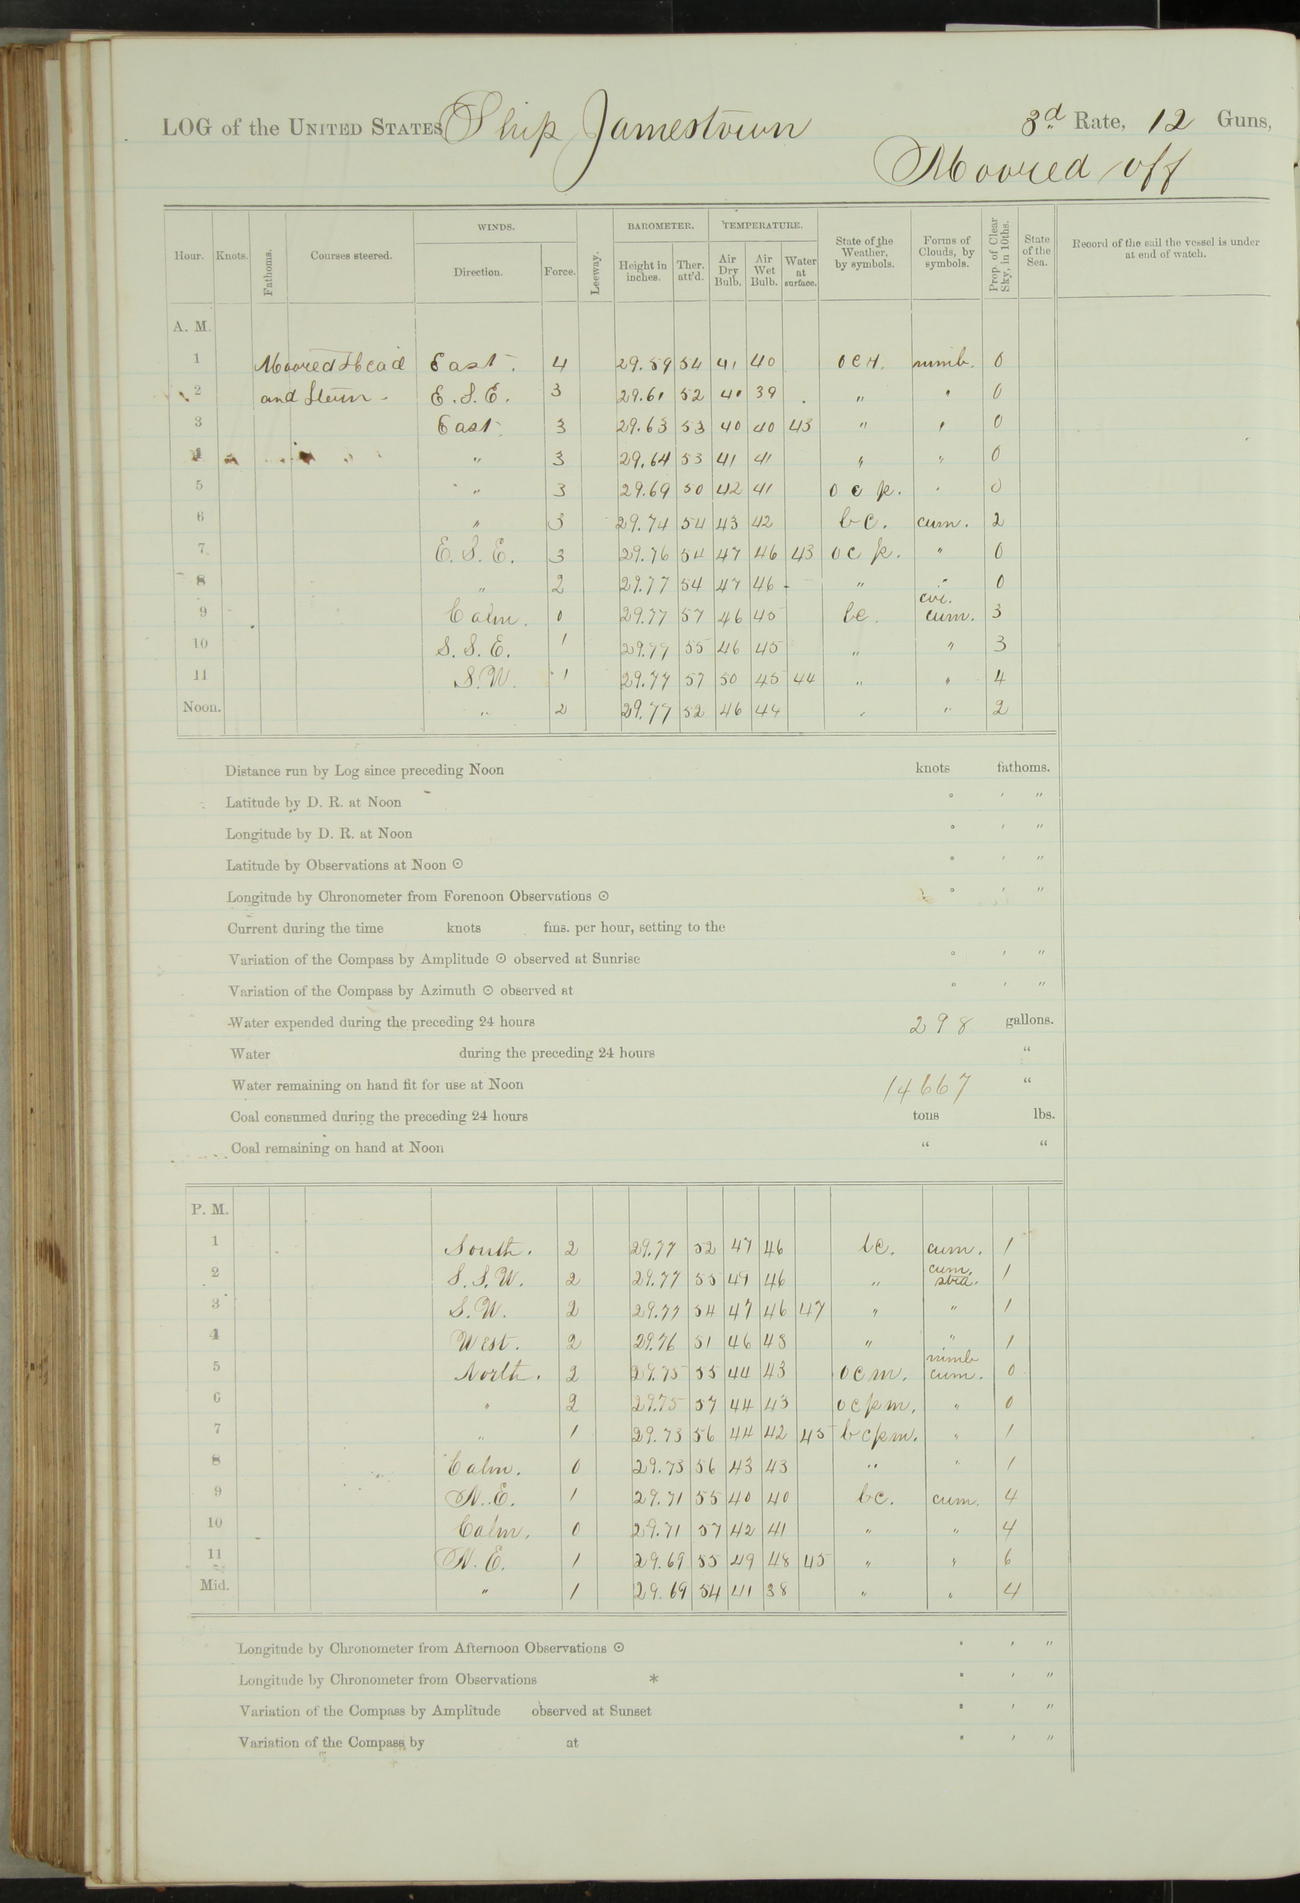 LOG of the UNITED STATES Ship Jamestown 3d Rate, 12 Guns,
Moored off
Hour. Knots. Fathoms. Courses steered. WINDS. Direction. Force. Leeway. BAROMETER. Height in inches. Ther. att'd. TEMPERATURE. Air Dry Bulb. Air Wet Bulb. Water at surface. State of the Weather, by symbols. Forms of Clouds, by symbols. Prop. of Clear Sky, in 10ths. State of the Sea. Record of the sail the vessel is under at end of watch.
A. M.
1 Moored Head East. 4 29.59 54 41 40 ocr. nimb. 0
2 and Stern - E.S.E. 3 29.61 52 40 39 " " 0
3 East 3 29.63 53 40 40 43 " " 0
4 " 3 29.64 53 41 41 " " 0
5 " 3 29.69 50 42 41 o c p. " 0
6 " 3 29.74 54 43 42 bc. cum. 2
7 E.S.E. 3 29.76 54 47 46 43 oc p. " 0
8 " 2 29.77 54 47 46 " " 0
9 Calm. 0 29.77 57 46 45 bc. cir. cum. 3
10 S.S.E. 1 29.77 55 46 45 " " 3
11 S.W. 1 29.77 57 50 45 44 " " 4
Noon. " 2 29.77 52 46 44 " " 2
Distance run by Log since preceding Noon knots fathoms.
Latitude by D. R. at Noon ° ' "
Longitude by D. R. at Noon ° ' "
Latitude by Observations at Noon ☉ ° ' "
Longitude by Chronometer from Forenoon Observations ☉ ° ' "
Current during the time knots fms. per hour, setting to the
Variation of the Compass by Amplitude ☉ observed at Sunrise ° ' "
Variation of the Compass by Azimuth ☉ observed at ° ' "
Water expended during the preceding 24 hours 298 gallons.
Water during the preceding 24 hours “
Water remaining on hand fit for use at Noon 14667 “
Coal consumed during the preceding 24 hours tons lbs.
Coal remaining on hand at Noon “ “
P. M.
1 South. 2 29.77 52 47 46 bc. cum. 1
2 S.S.W. 2 29.77 55 49 46 " cum. stra. 1
3 S.W. 2 29.77 54 47 46 47 " " 1
4 West. 2 29.76 51 46 43 " " 1
5 North. 2 29.75 55 44 43 ocm. nimb cum. 0
6 " 2 29.75 57 44 43 ocpm. " 0
7 " 1 29.73 56 44 42 45 bcpm. " 1
8 Calm. 0 29.73 56 43 43 " " 1
9 N.E. 1 29.71 55 40 40 bc. cum. 4
10 Calm. 0 29.71 57 42 41 " " 4
11 N.E. 1 29.69 55 49 48 45 " " 6
Mid. " 1 29.69 54 41 38 " " 4
Longitude by Chronometer from Afternoon Observations ☉ ° ' "
Longitude by Chronometer from Observations * ° ' "
Variation of the Compass by Amplitude observed at Sunset ° ' "
Variation of the Compass by at ° ' "